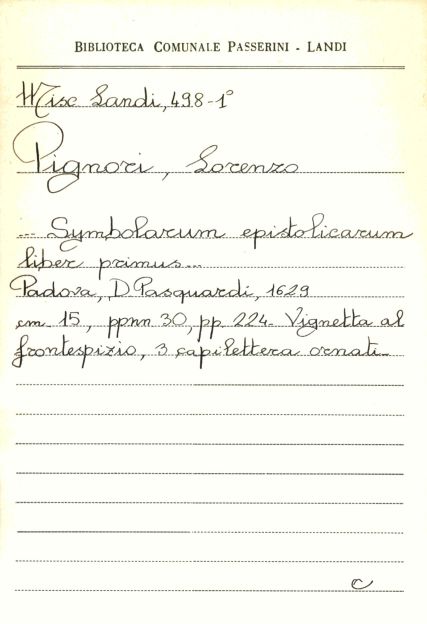 BIBLIOTECA COMUNALE PASSERINI - LANDI
Misc Landi, 498-1°
Pignori, Lorenzo
... Symbolarum epistolicarum
liber primus...
Padova, D Pasquardi, 1629
cm 15, ppnn 30, pp. 224. Vignetta al
frontespizio, 3 capilettera ornati_
c